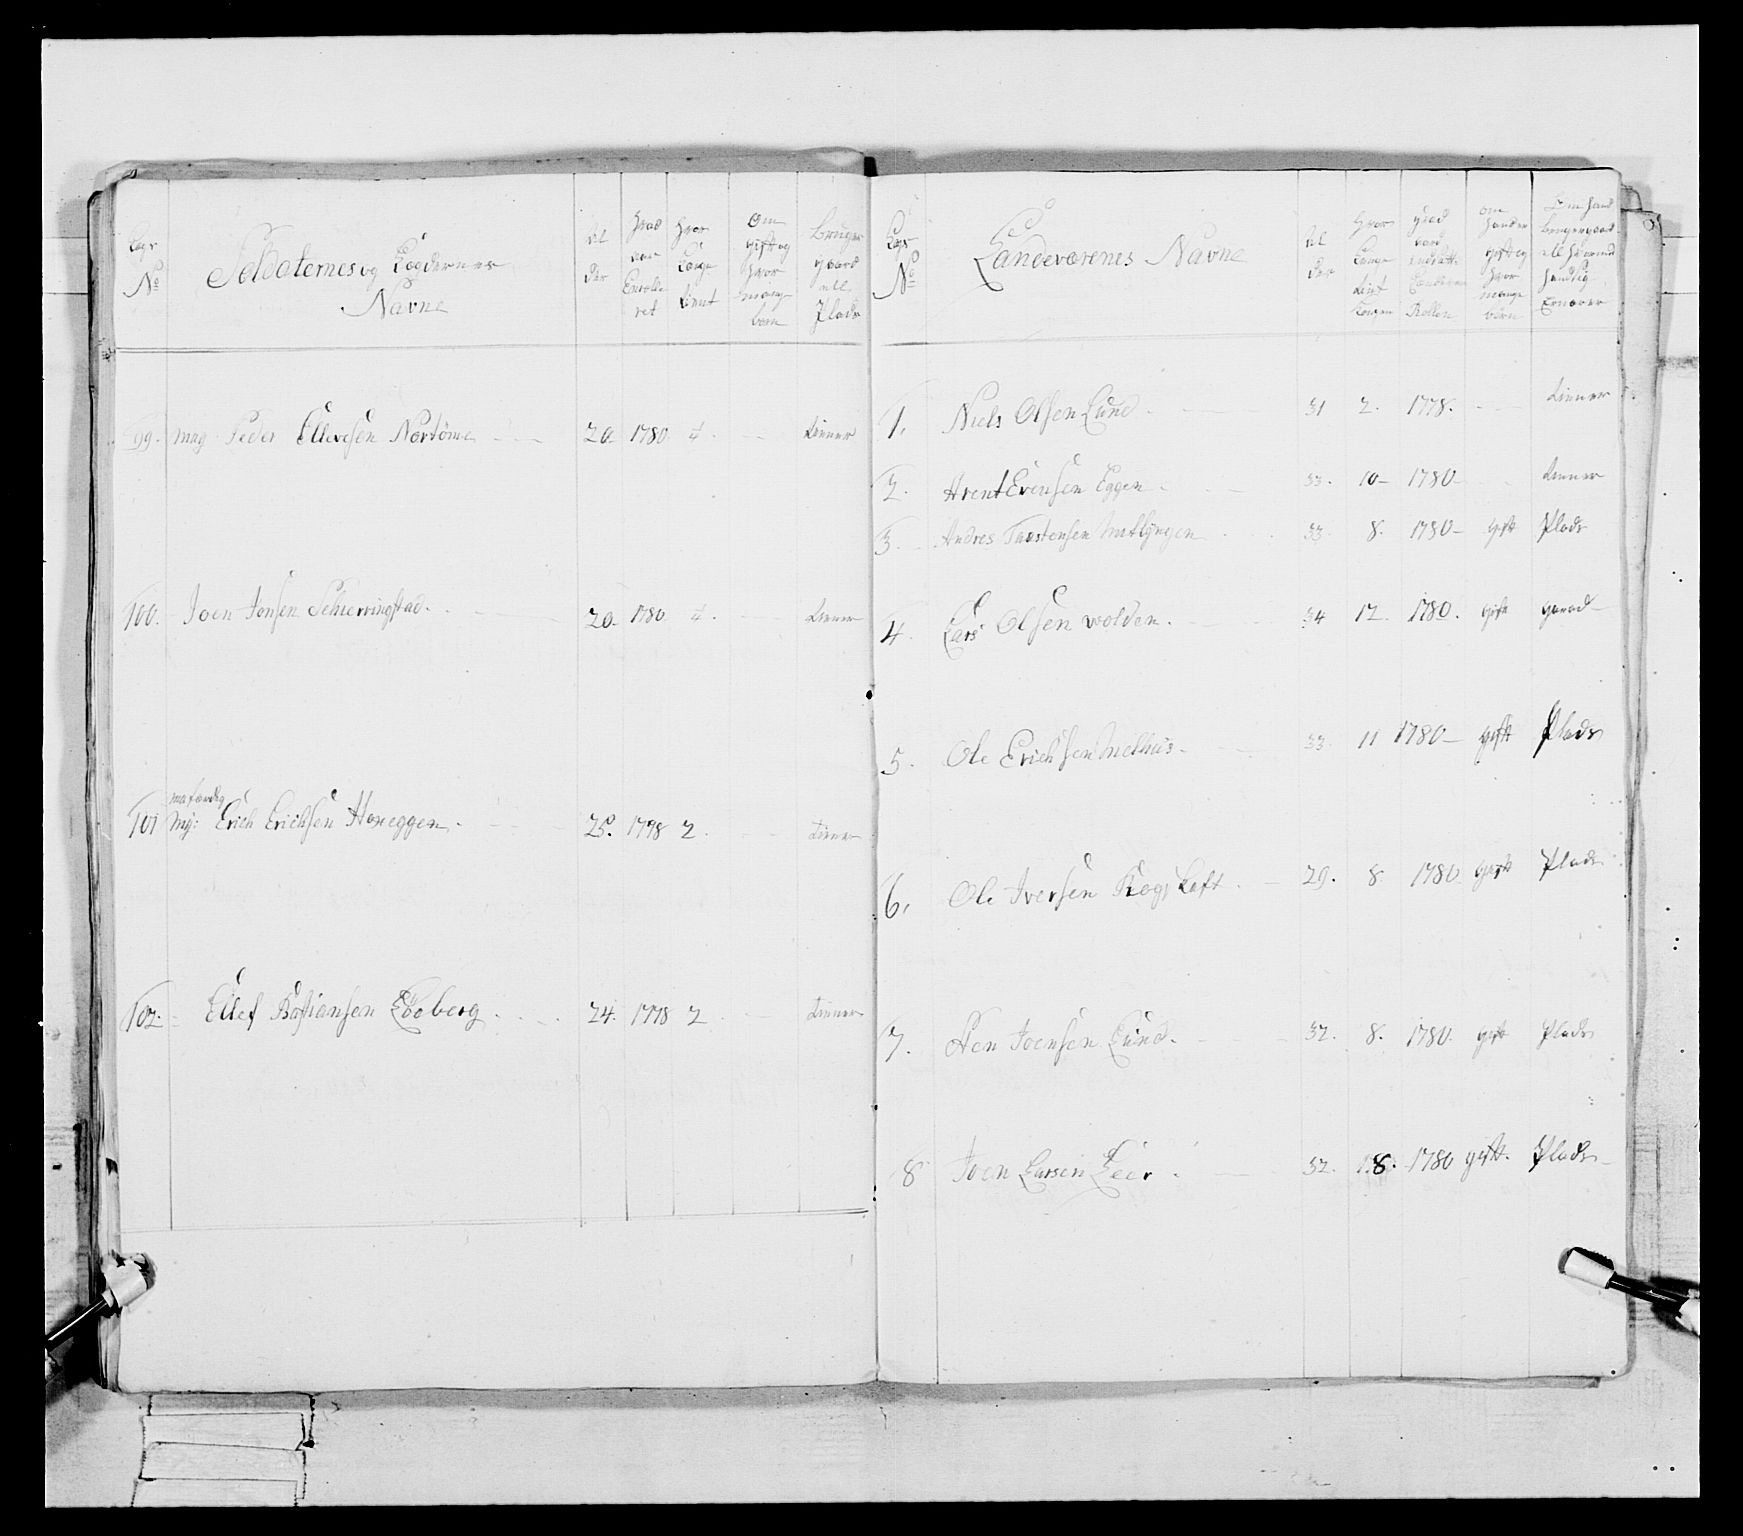 Legs No
Soldaternes og Lægdernes Navne
Al der
Hvad aar Enrolle ret
Hvor Længe tient
Om gift og hvor mange børn
Bruger gaard ell. Plads
99. Peder Ellevsen Nortömme 20 1780 4. tiener
100. Joen Jonsen Schierringstad. 20. 1780 4. tiener
101 Erich Erichsen Hoxeggen. 25. 1778 2. tiener
102. Ellef Bastiansen Egberg 24. 1778 2 tiener
Legs No
Landeværenes Navne
Al der
Hvor Længe tient Kongen
Hvad aar indsatt Landværn Rollen
om handr gift og hvor mange börn
Om hand bruger gaard ell. hvormed hand sig Ernærer
1. Niels Olsen Lund. 31 2. 1778. tiener
2. Arent Evensen Eggen. 33. 10 - 1780 - tiener
3. Andres Taastensen 33. 8. 1780 - gift Plads
4. Lars Olsen wolden. 34 12. 1780. gift gaard -
5. Ole Erichsen Melhus. 33. 11 1780 - gift Plads
6. Ole Iversen Kogskeft. 29. 8. 1780 gift Plads
7. Joensen Lund. 32. 8. 1780. gift Plads
8 Joen Larsen Leer. 32. 8. 1780 gift. Plads -